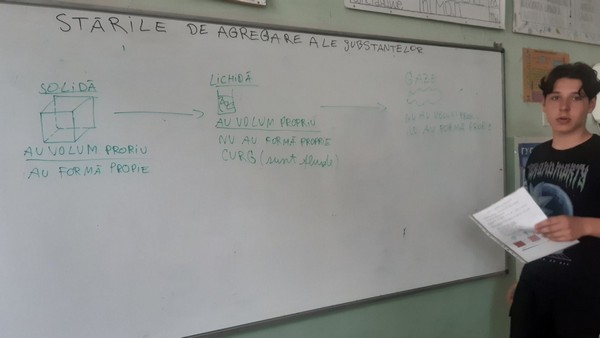 STĂRILE DE AGREGARE ALE SUBSTANȚELOR
SOLIDĂ
AU VOLUM PROPRIU
AU FORMĂ PROPIE
LICHIDĂ
AU VOLUM PROPRIU
NU AU FORMĂ PROPRIE
CURG (sunt fluide)
GAZE
NU AU VOLUM
NU AU FORMĂ PROPIE